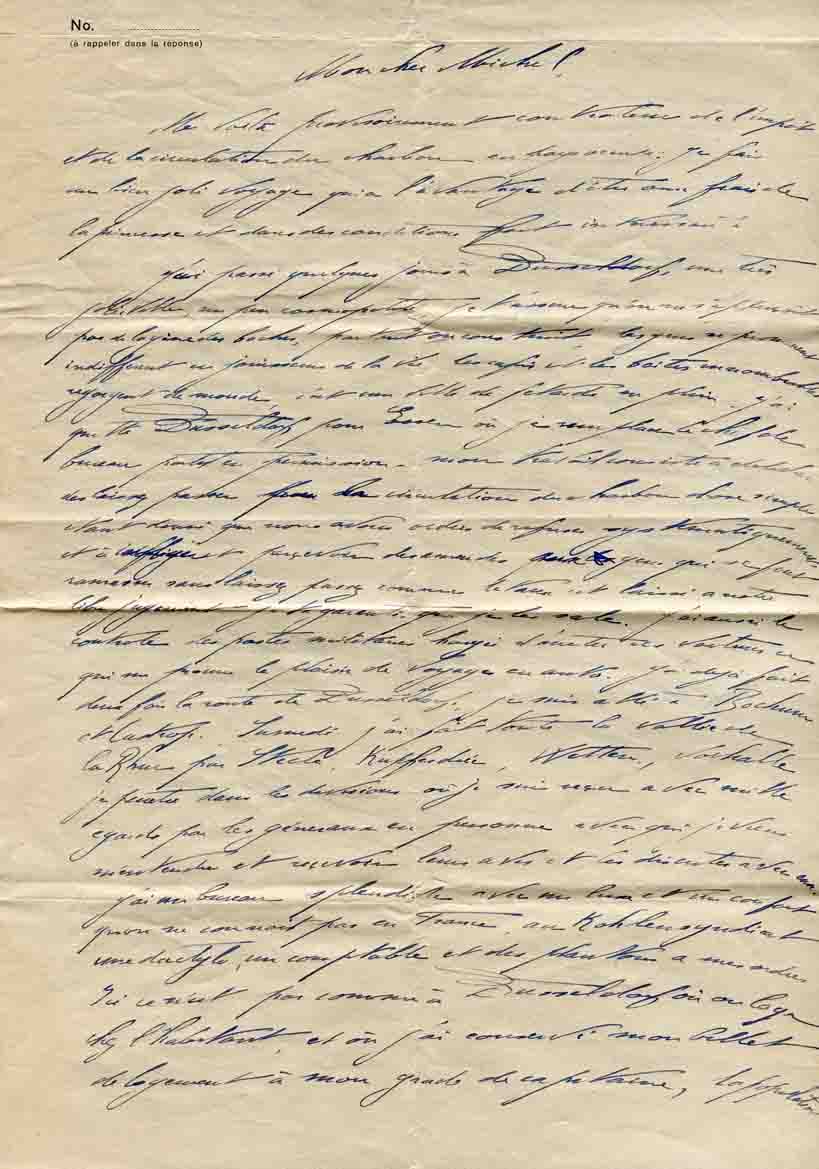 No. ....................
(à rappeler dans la réponse)
Mon cher Michel,
Me voilà provisoirement contrôleur de l'impôt
et de la circulation du charbon en pays occupé. Je fais
un bien joli voyage qui a l'avantage d'être aux frais de
la princesse et dans des conditions fort intéressantes
J'ai passé quelques jours à Dusseldorf, une très
jolie ville, un peu cosmopolite, je t'assure qu'on ne s'aperçoit
pas de la gêne des boches, partout on construit, les gens se promènent
indifférent en jouisseurs de la vie les cafés et les boîtes innombrables
regorgent de monde, c'est une ville de fêtards en plein. J'ai
quitté Dusseldorf pour Essen où je remplace le chef de
bureau parti en permission. Mon travail consiste à délivrer
des laissez passer pour la circulation du charbon chose simple
étant donné que nous avons ordre de refuser systématiquement
et à infliger et percevoir des amendes aux gens qui se font
ramasser sans laissez passer comme le taux est laissé à notre
libre jugement je te garantis que je les sale. J'ai aussi le
contrôle des postes militaires chargés d'arrêter ces voitures ce
qui me procure le plaisir de voyager en auto. J'ai déjà fait
deux fois la route de Dusseldorf, je suis allé à Bochum
et Castrop. Samedi j'ai fait toute la vallée de
la Rhur par Steele, Kupferdreh, Witten,
je dans les divisions où je suis reçu avec mille
égards par les généraux en personne avec qui je viens
m'entendre et recevoir leurs avis et les discuter avec eux.
J'ai un bureau splendide avec un luxe et un confort
qu'on ne connaît pas en France, au Kohlensyndicat
une dactylo, un comptable et des plantons à mes ordres
Ici ce n'est pas comme à Dusseldorf où on loge
chez l'habitant, et où j'ai conservé mon billet
de logement à mon grade de capitaine, la population